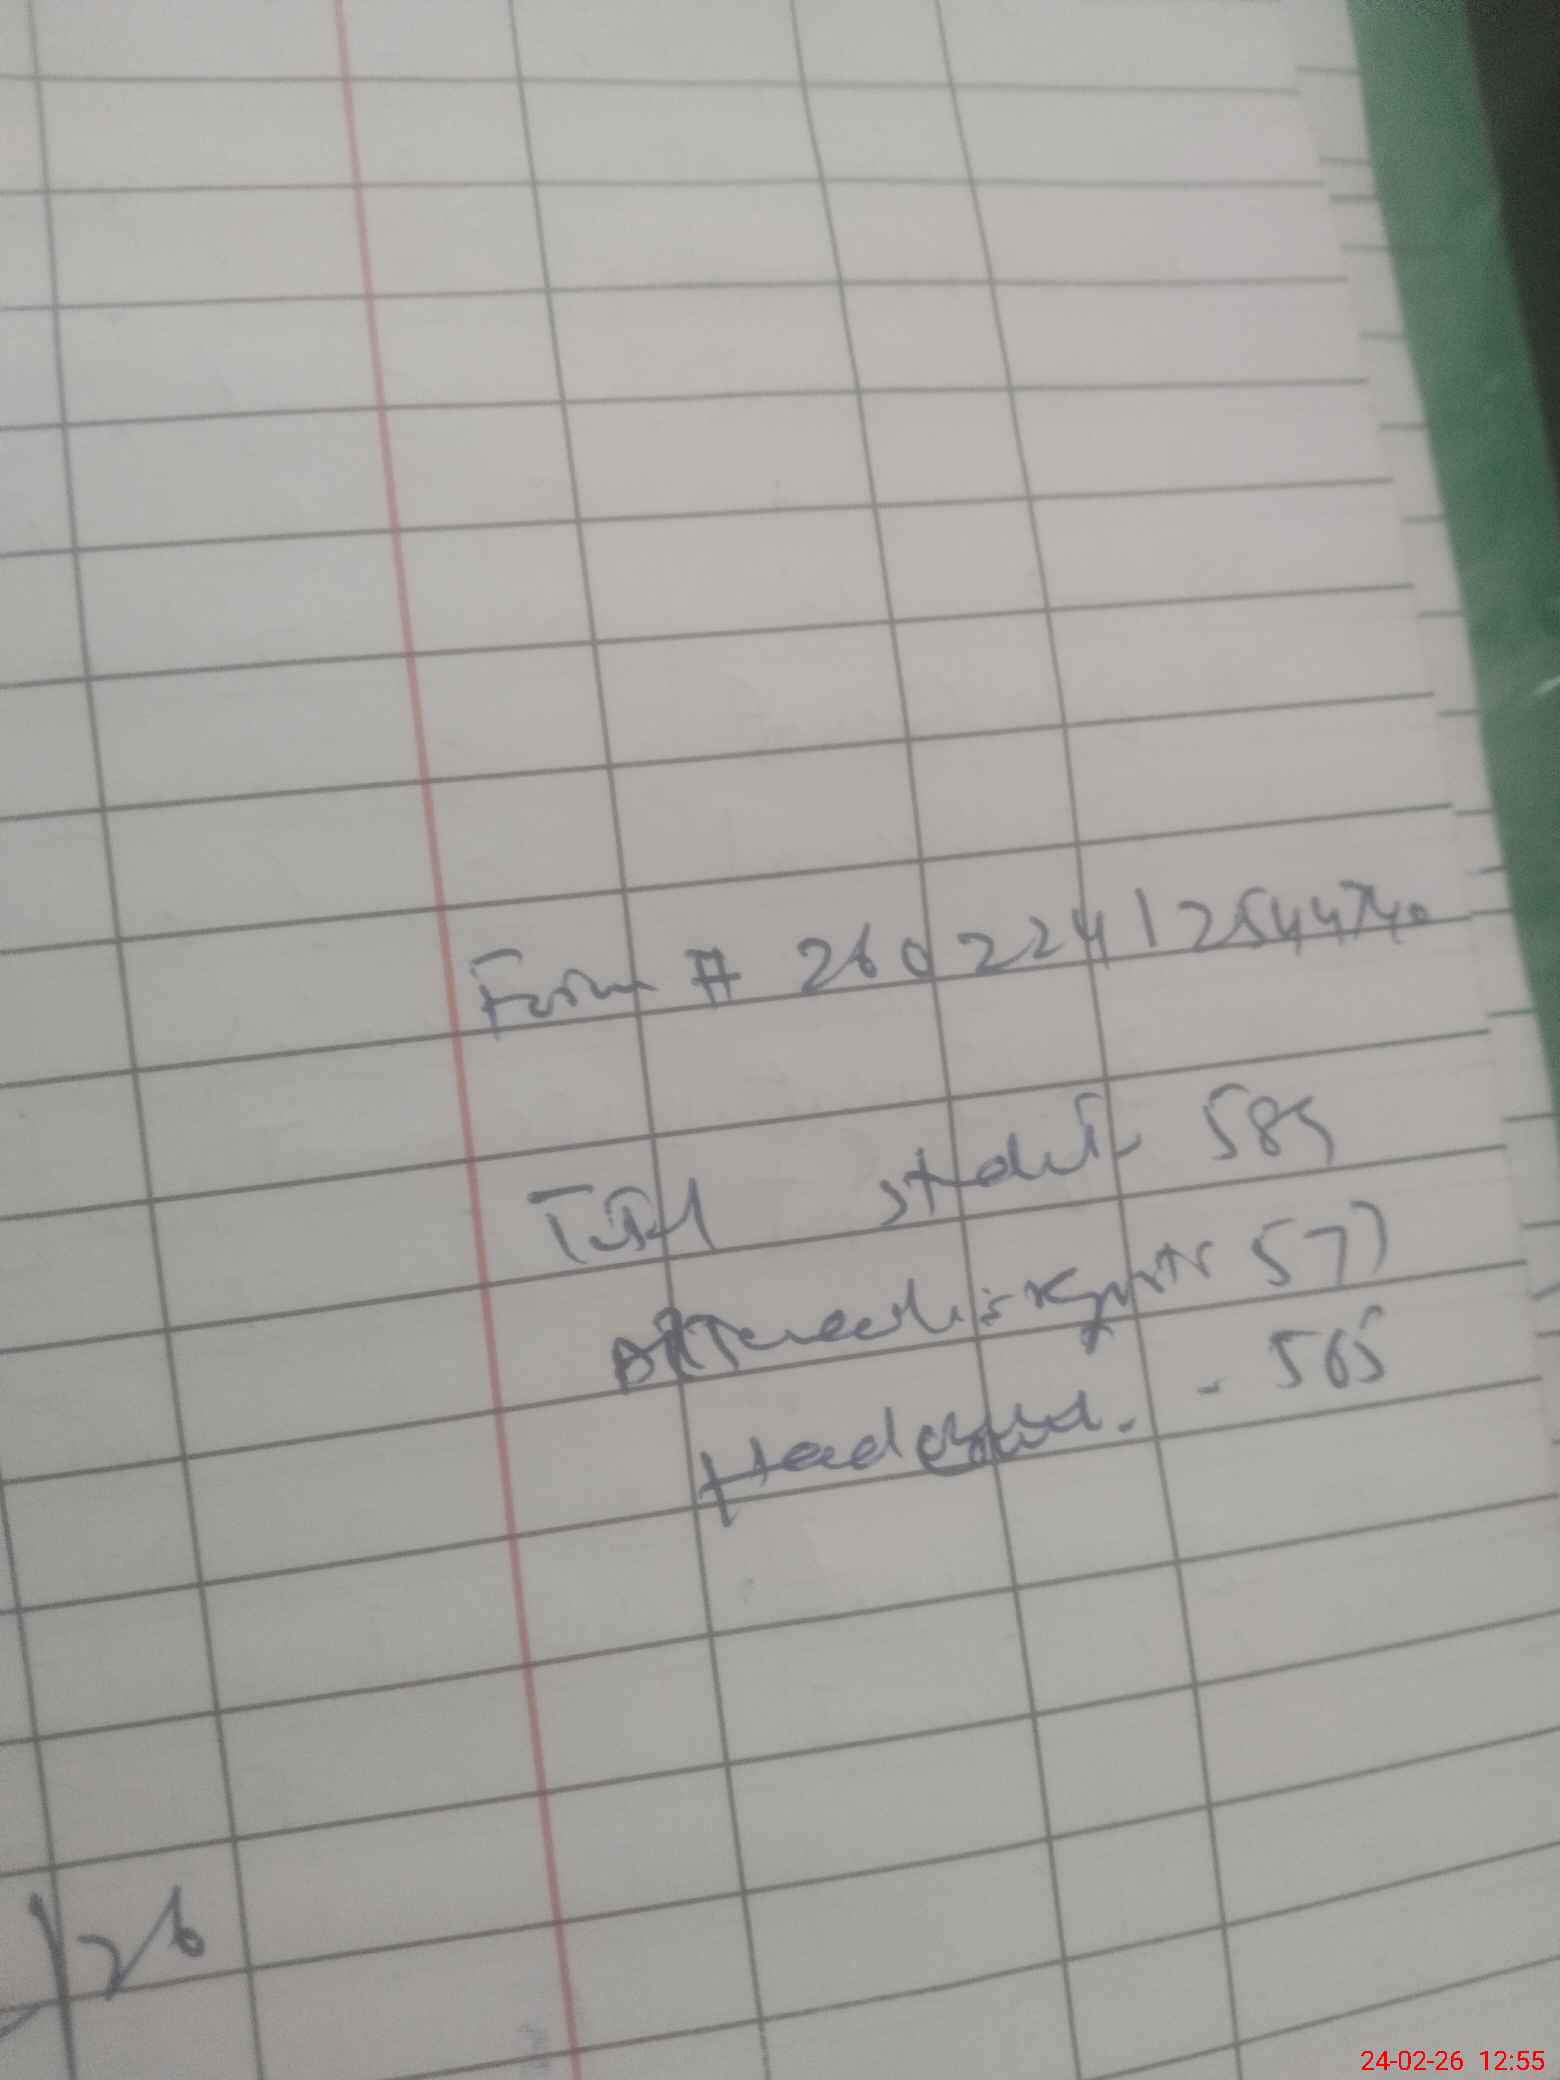 Form # 26022412544740
Total student 585
Attendance register 577
Headcount. - 565
/26
24-02-26 12:55